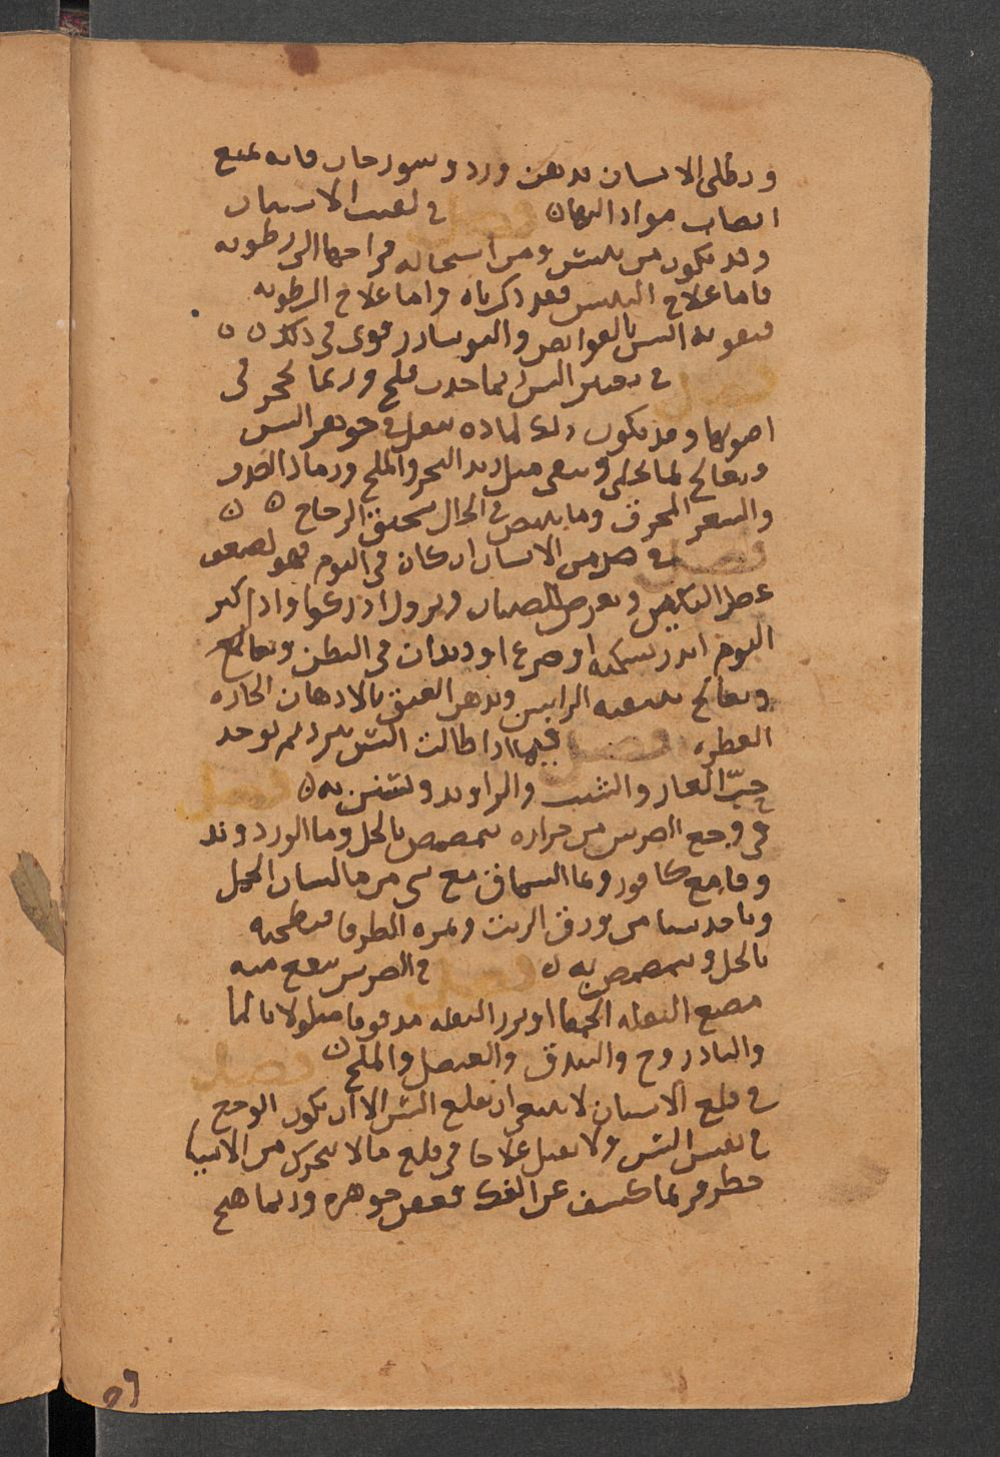 ويطلى الاسنان بدهن ورد وسورنجان فانه يمنع
انصباب مواد الى فصل في تفتت الاسنان
وقد يكون من يبس ومن استحالة مزاجها الى رطوبة
فاما علاج اليبس فقد ذكرناه واما علاج الرطوبة
فتقوية السن بالقوابض والنوشادر قوى في ذلك
فصل في تغير السن ربما حدث قلح وربما تحجر في
اصولها وقد يكون ذلك لمادة تنفذ في جوهر السن
ويعالج بما يجلى وينقى مثل زبد البحر والملح ورماد الصدف
والشعير المحرق ومما يبيض في الحال سحيق الزجاج
فصل في صرير الاسنان ان كان في النوم فهو لضعف
عضل الفكين ويعرض للصبيان ويزول اذا ادركوا واذا كثر
النوم انذر بسكتة او صرع او ديدان في البطن
ويعالج بتنقية الراس ودهن العنق بالادهان الحارة
العطرة فصل فيما اذا طالت السن يبرد ثم يوخذ
حب الغار والشب والراوند ويستن به فصل
في وجع الضرس من حرارة يتمضمض بالخل وماء الورد
مع كافور وبماء السماق مع شي من ماء لسان الحمل
وياخذ شيا من ورق الزيت وثمرة الطرفا فيطبخه
بالخل ويتمضمض به فصل في الضرس ينفع منه
مضغ البقلة الحمقا او بزر البقلة مدقوقا مبلولا بالماء
والباذروج والبندق والعنصل والملح فصل
في قلع الاسنان لا ينبغى ان يقلع السن الا ان يكون الوجع
في نفس السن ولا يقبل علاجا في قلع مالا يتحرك من الاسنان
خطر فربما كشف عن الفك فعفن جوهره وربما هيج